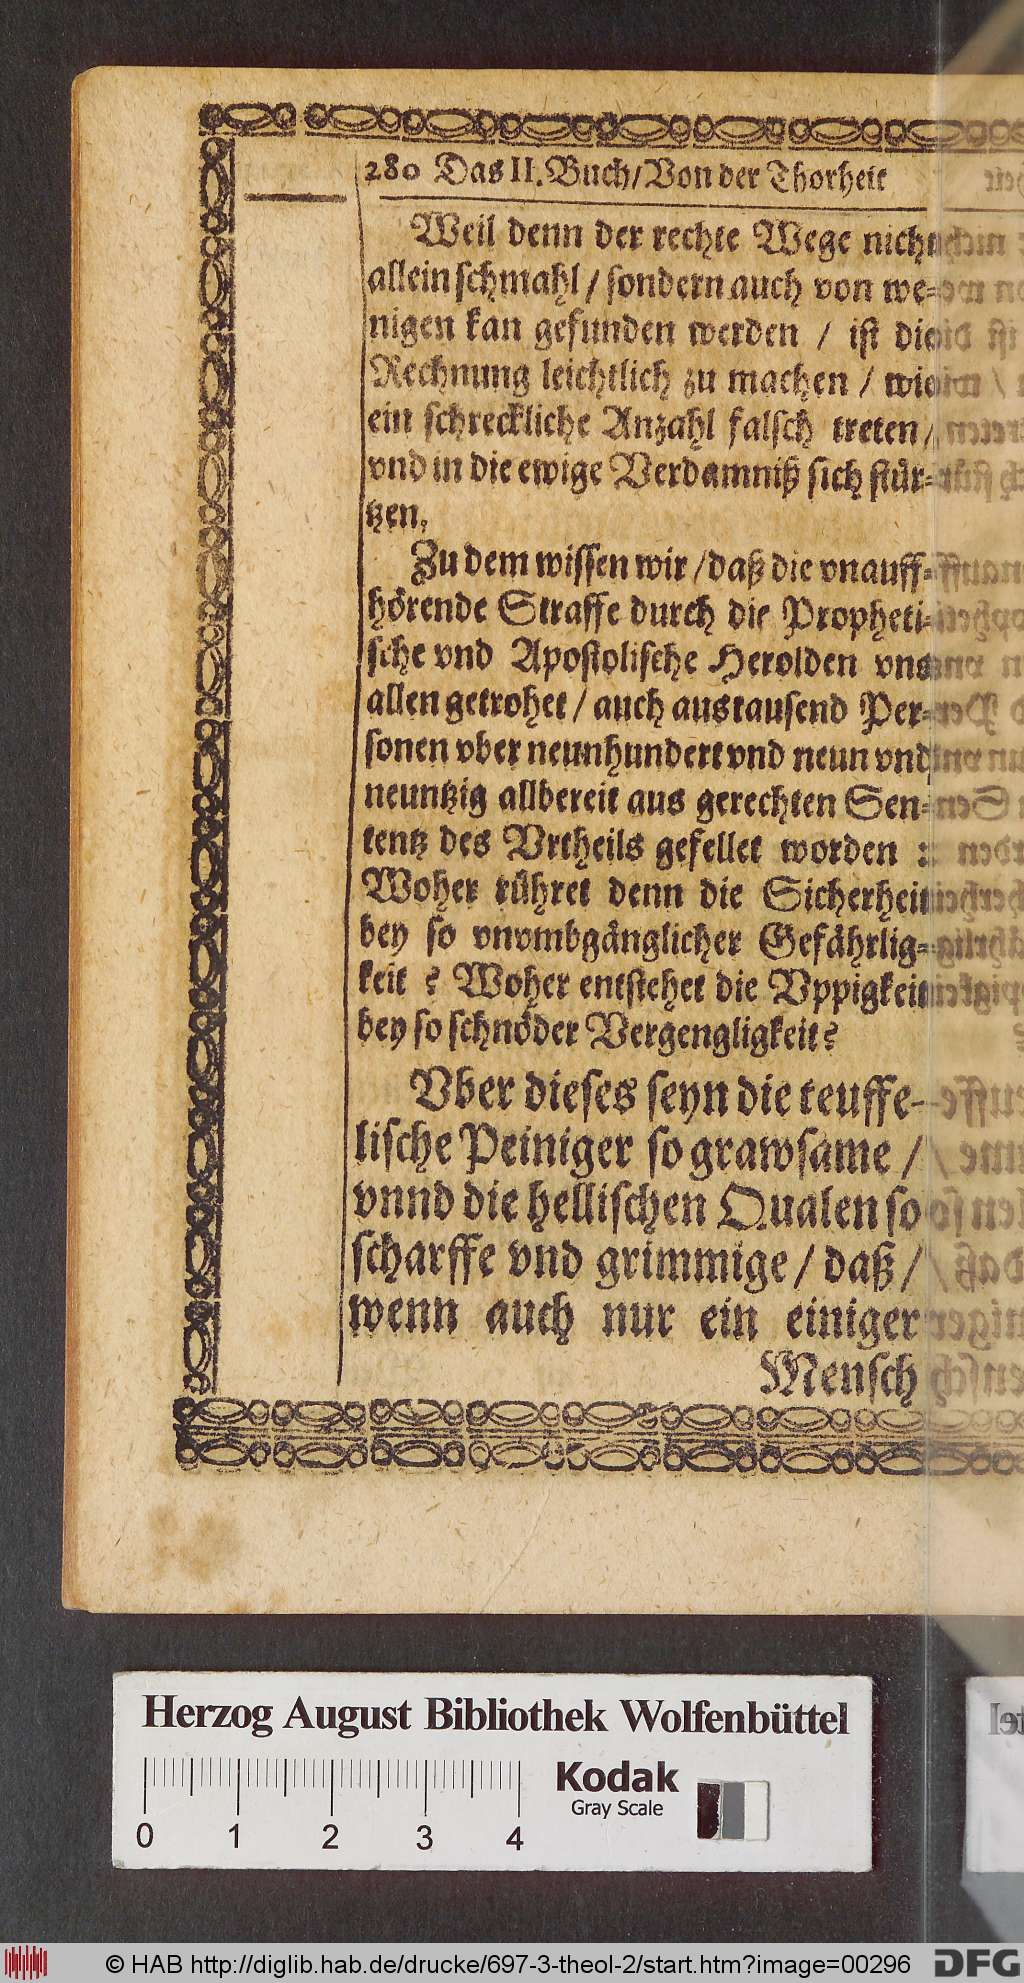 280 Das II. Buch/ Von der Thorheit
Weil denn der rechte Wege nicht
allein schmahl / sondern auch von we-
nigen kan gefunden werden / ist die
Rechnung leichtlich zu machen / wie
ein schreckliche Anzahl falsch treten /
vnd in die ewige Verdamniß sich stůr-
tzen.
Zu dem wissen wir / daß die vnauff-
hörende Straffe durch die Propheti-
sche vnd Apostolische Herolden vns
allen getrohet / auch aus tausend Per-
sonen vber neunhundert vnd neun vnd
neuntzig allbereit aus gerechten Sen-
tentz des Vrtheils gefellet worden :
Woher růhret denn die Sicherheit
bey so vnvmbgånglicher Gefåhrlig-
keit ? Woher entstehet die Vppigkeit
bey so schnöder Vergengligkeit?
Vber dieses seyn die teuffe-
lische Peiniger so grawsame /
vnnd die hellischen Qualen so
scharffe vnd grimmige / daß /
wenn auch nur ein einiger
Mensch
Herzog August Bibliothek Wolfenbüttel
Kodak
Gray Scale
0 1 2 3 4
© HAB http://diglib.hab.de/drucke/697-3-theol-2/start.htm?image=00296
DFG